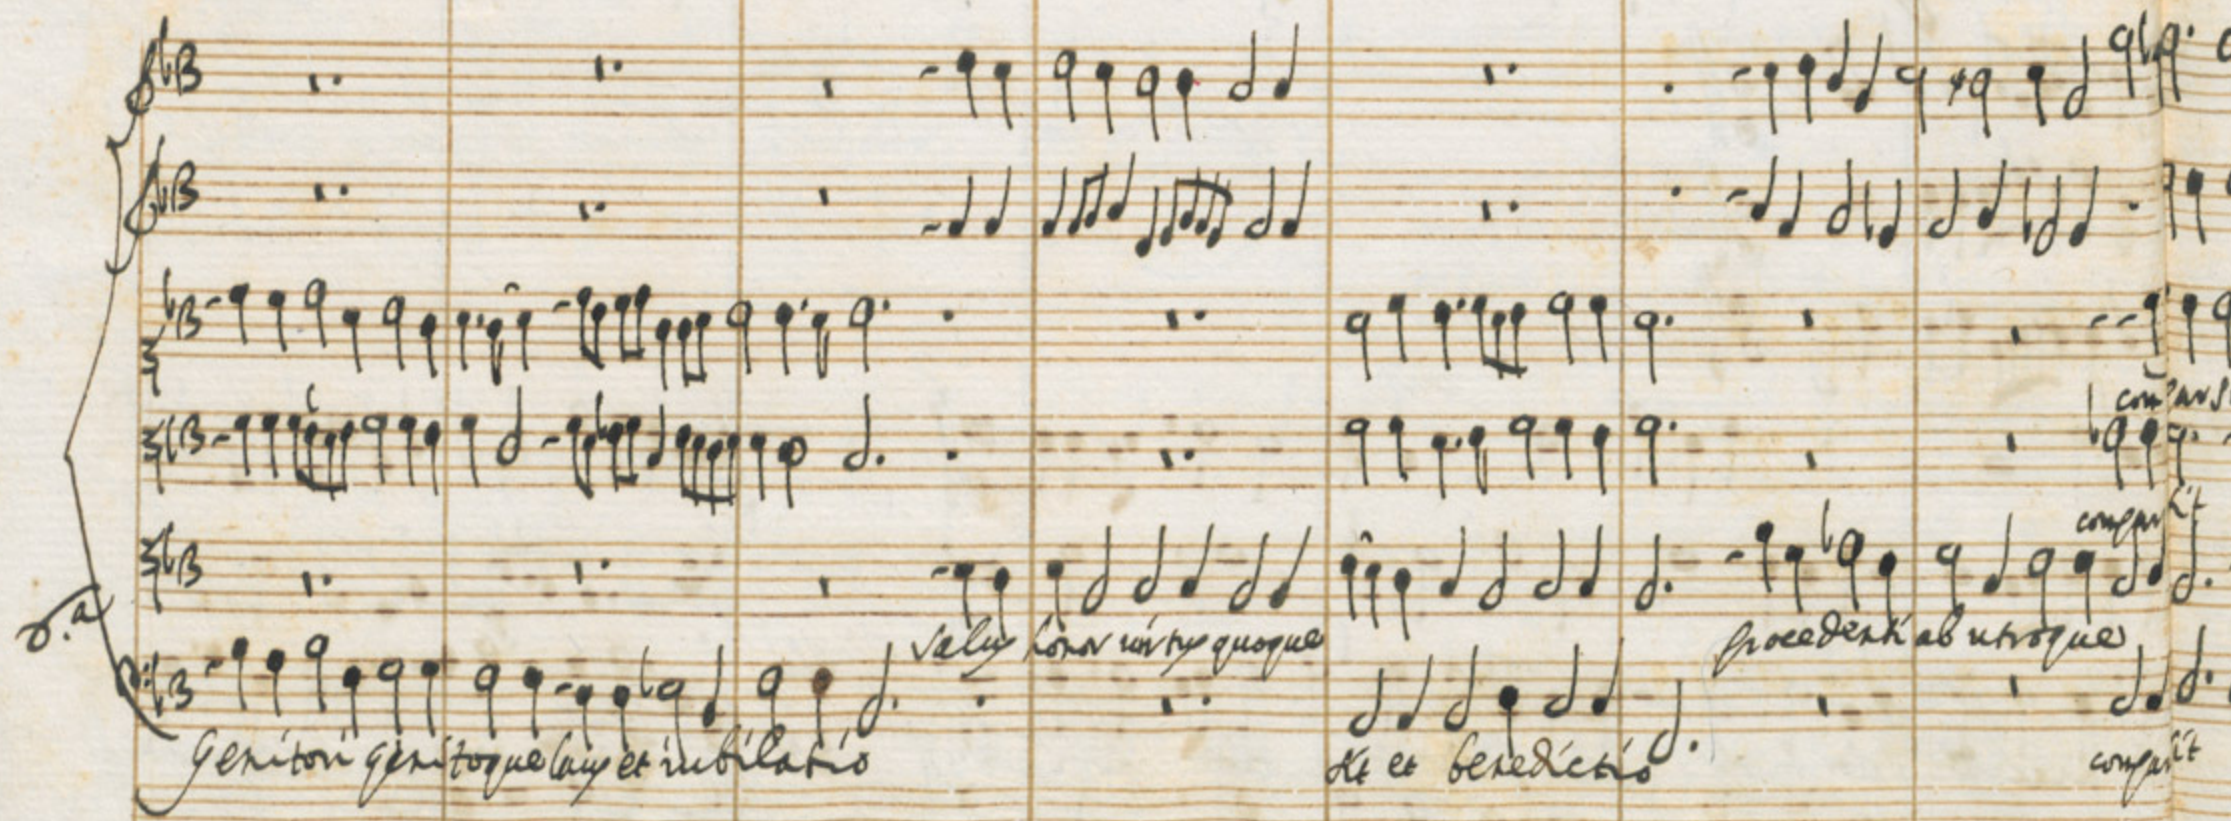 compar
compar sit
8.a
salus honor virtus quoque
procedenti ab utroque
Genitori genitoque laus et iubilatio
sit et benedictio
compar sit